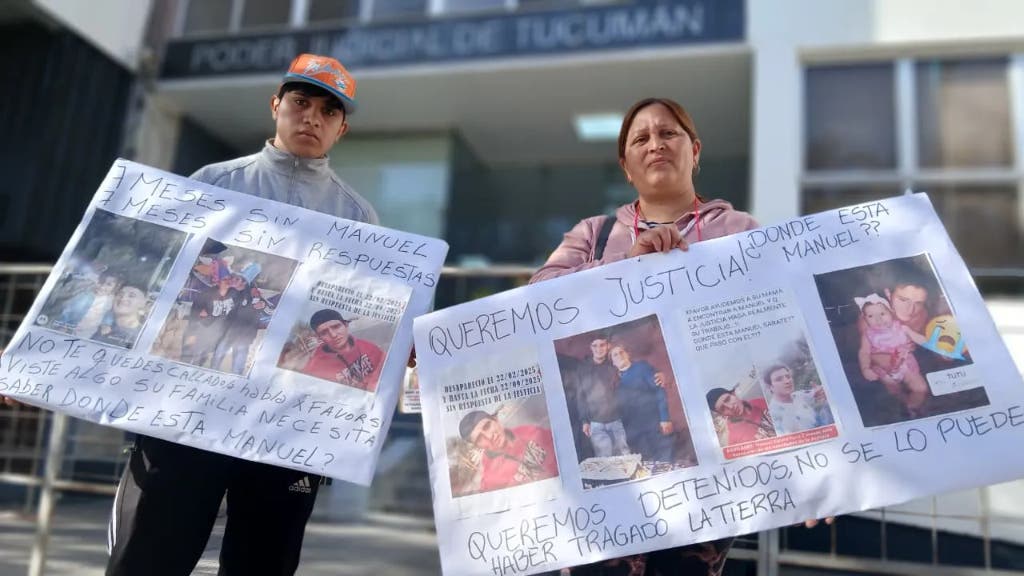 PODER JUDICIAL DE TUCUMÁN
7 MESES SIN MANUEL
7 MESES SIN RESPUESTAS
DESAPARECIO EL 22/02/2025
HASTA LA FECHA 22/09/2025
SIN RESPUESTA DE LA JUSTICIA
NO TE QUEDES CALLADOS hablo X FAVOR SI
VISTE ALGO SU FAMILIA NECESITA
SABER DONDE ESTA MANUEL?
adidas
QUEREMOS JUSTICIA!
¿DONDE ESTA
MANUEL??
DESAPARECIO EL 22/02/2025
Y HASTA LA FECHA 22/09/2025
SIN RESPUESTA DE LA JUSTICIA
XFAVOR AYUDEMOS A SU MAMA
A ENCONTRAR A MANUEL Y Q
LA JUSTICIA HAGA REALMENTE
SU TRABAJO. !!
DONDE ESTA MANUEL SABATE??
QUE PASO CON EL???
TUTU
QUEREMOS DETENIDOS, NO SE LO PUEDE
HABER TRAGADO LA TIERRA